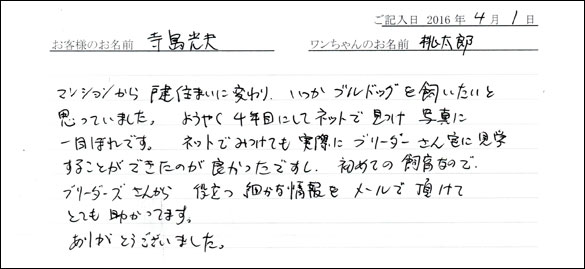 ご記入日 2016 年 4 月 1 日
お客様のお名前 寺島光夫 ワンちゃんのお名前 桃太郎
マンションから 戸建住まいに変わり、いつか ブルドッグを飼いたいと
思っていました。 ようやく 4年目にしてネットで 見つけ 写真に
一目ぼれです。 ネットでみつけても 実際に ブリーダーさん宅に見学
することができたのが 良かったですし、初めての 飼育なので、
ブリーダーズさんから 役立つ 細かな情報を メールで 頂けて
とても 助かってます。
ありがとうございました。